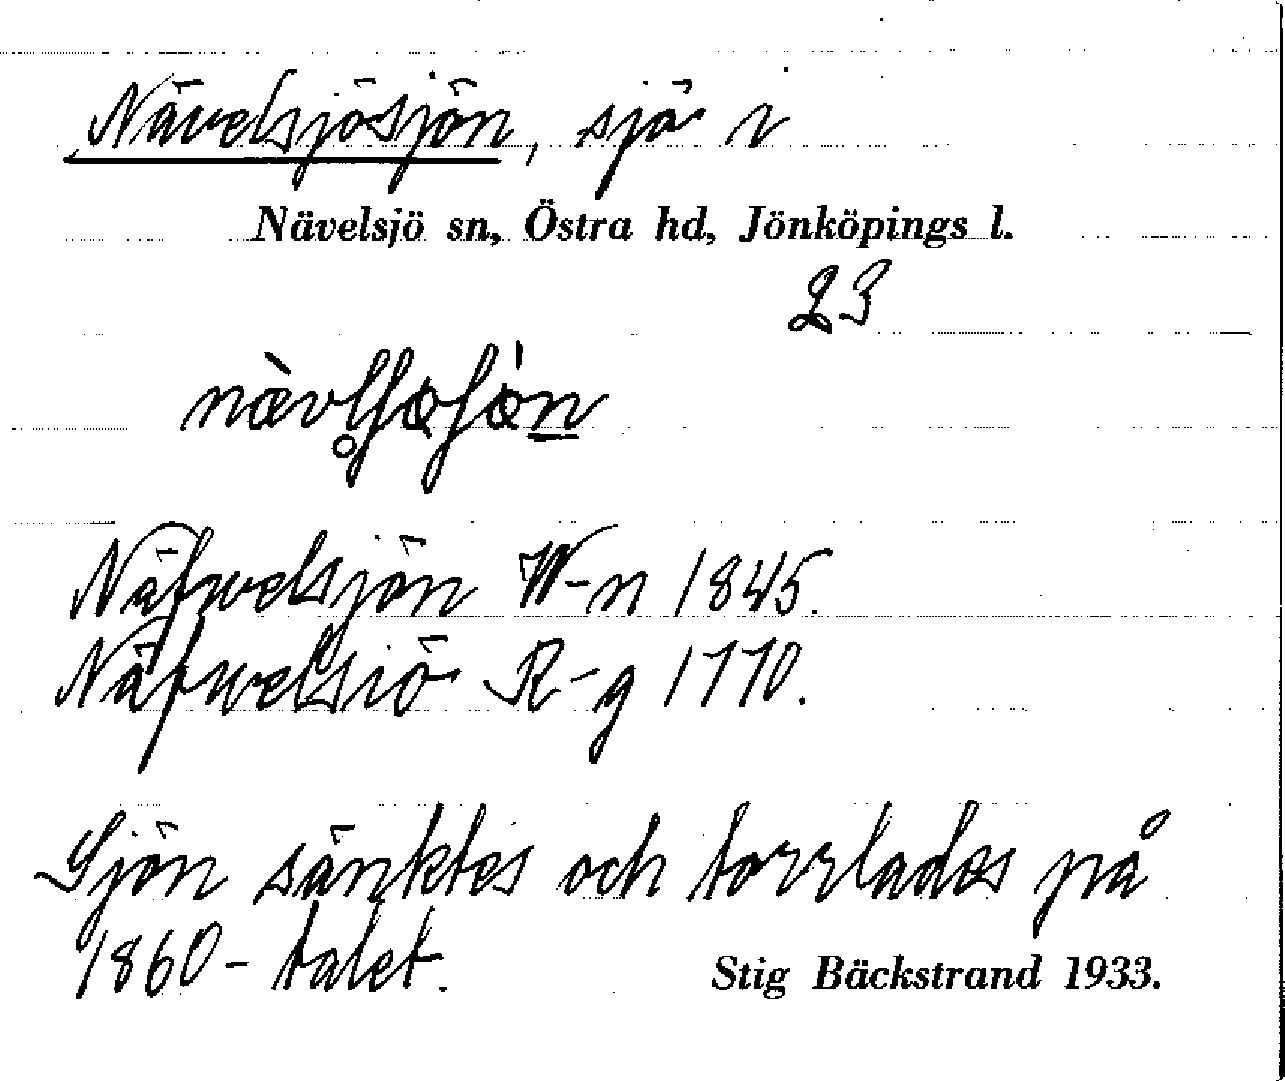 Nävelsjösjön, sjö i
Nävelsjö sn, Östra hd, Jönköpings l.
23
Näfwelsjön W-n 1845.
Näfwelsiö R-g 1770.
Sjön sänktes och torrlades på
1860-talet.
Stig Bäckstrand 1933.